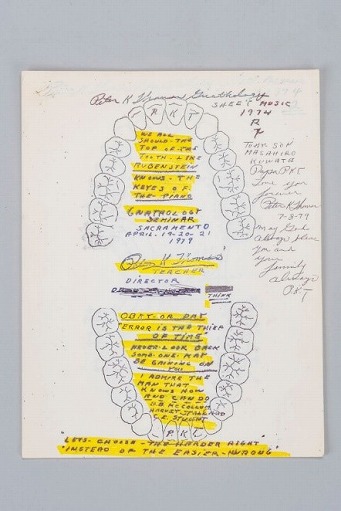 Peter K Thomas Gnathology
SHEET MUSIC
1974
PKT
WE ALL
SHOULD - THE
TOP OF THE
TOOTH - LIKE
RUBENSTEIN
KNOWS - THE
KEYES OF
THE PIANO
GNATHOLOGY
SEMINAR
SACRAMENTO
APRIL - 19-20-21
1979
Peter K Thomas
TEACHER
DIRECTOR
THINK
YOUR SON
MASAHIRO
KUWATA
Papa PKT
Love you
forever
Peter K Thomas
7-8-79
May God
always bless
you and
your
family
always
PKT
OBEY - OR PAY
"ERROR IS THE THIEF
OF TIME
NEVER - LOOK BACK
SOME-ONE MAY
BE GAINING ON
YOU
I ADMIRE THE
MAN THAT
KNOWS HOW
AND CAN DO
HARVEY STALLARD
C.E. STUART
PKT
"LETS - CHOOSE - THE HARDER RIGHT
INSTEAD OF THE EASIER - WRONG"